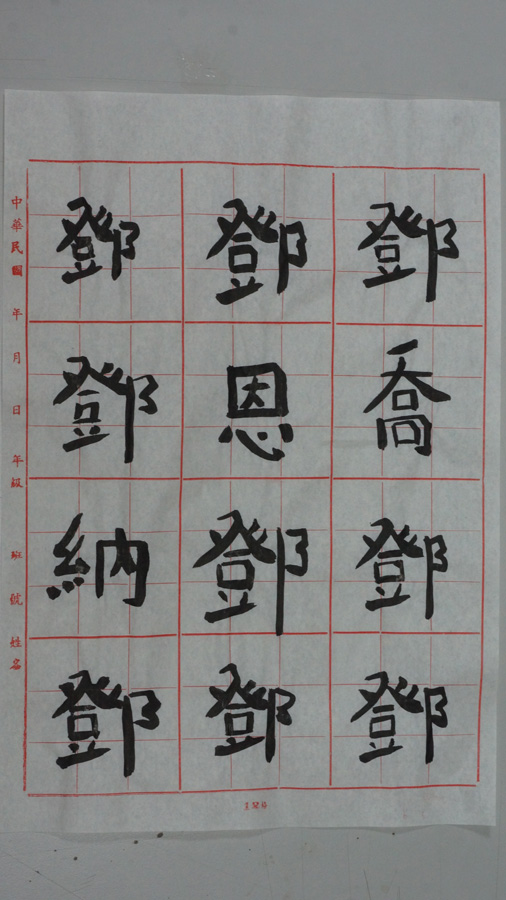 鄧喬鄧鄧
鄧恩鄧鄧
鄧鄧納鄧
中華民國 年 月 日 年級 班 號 姓名